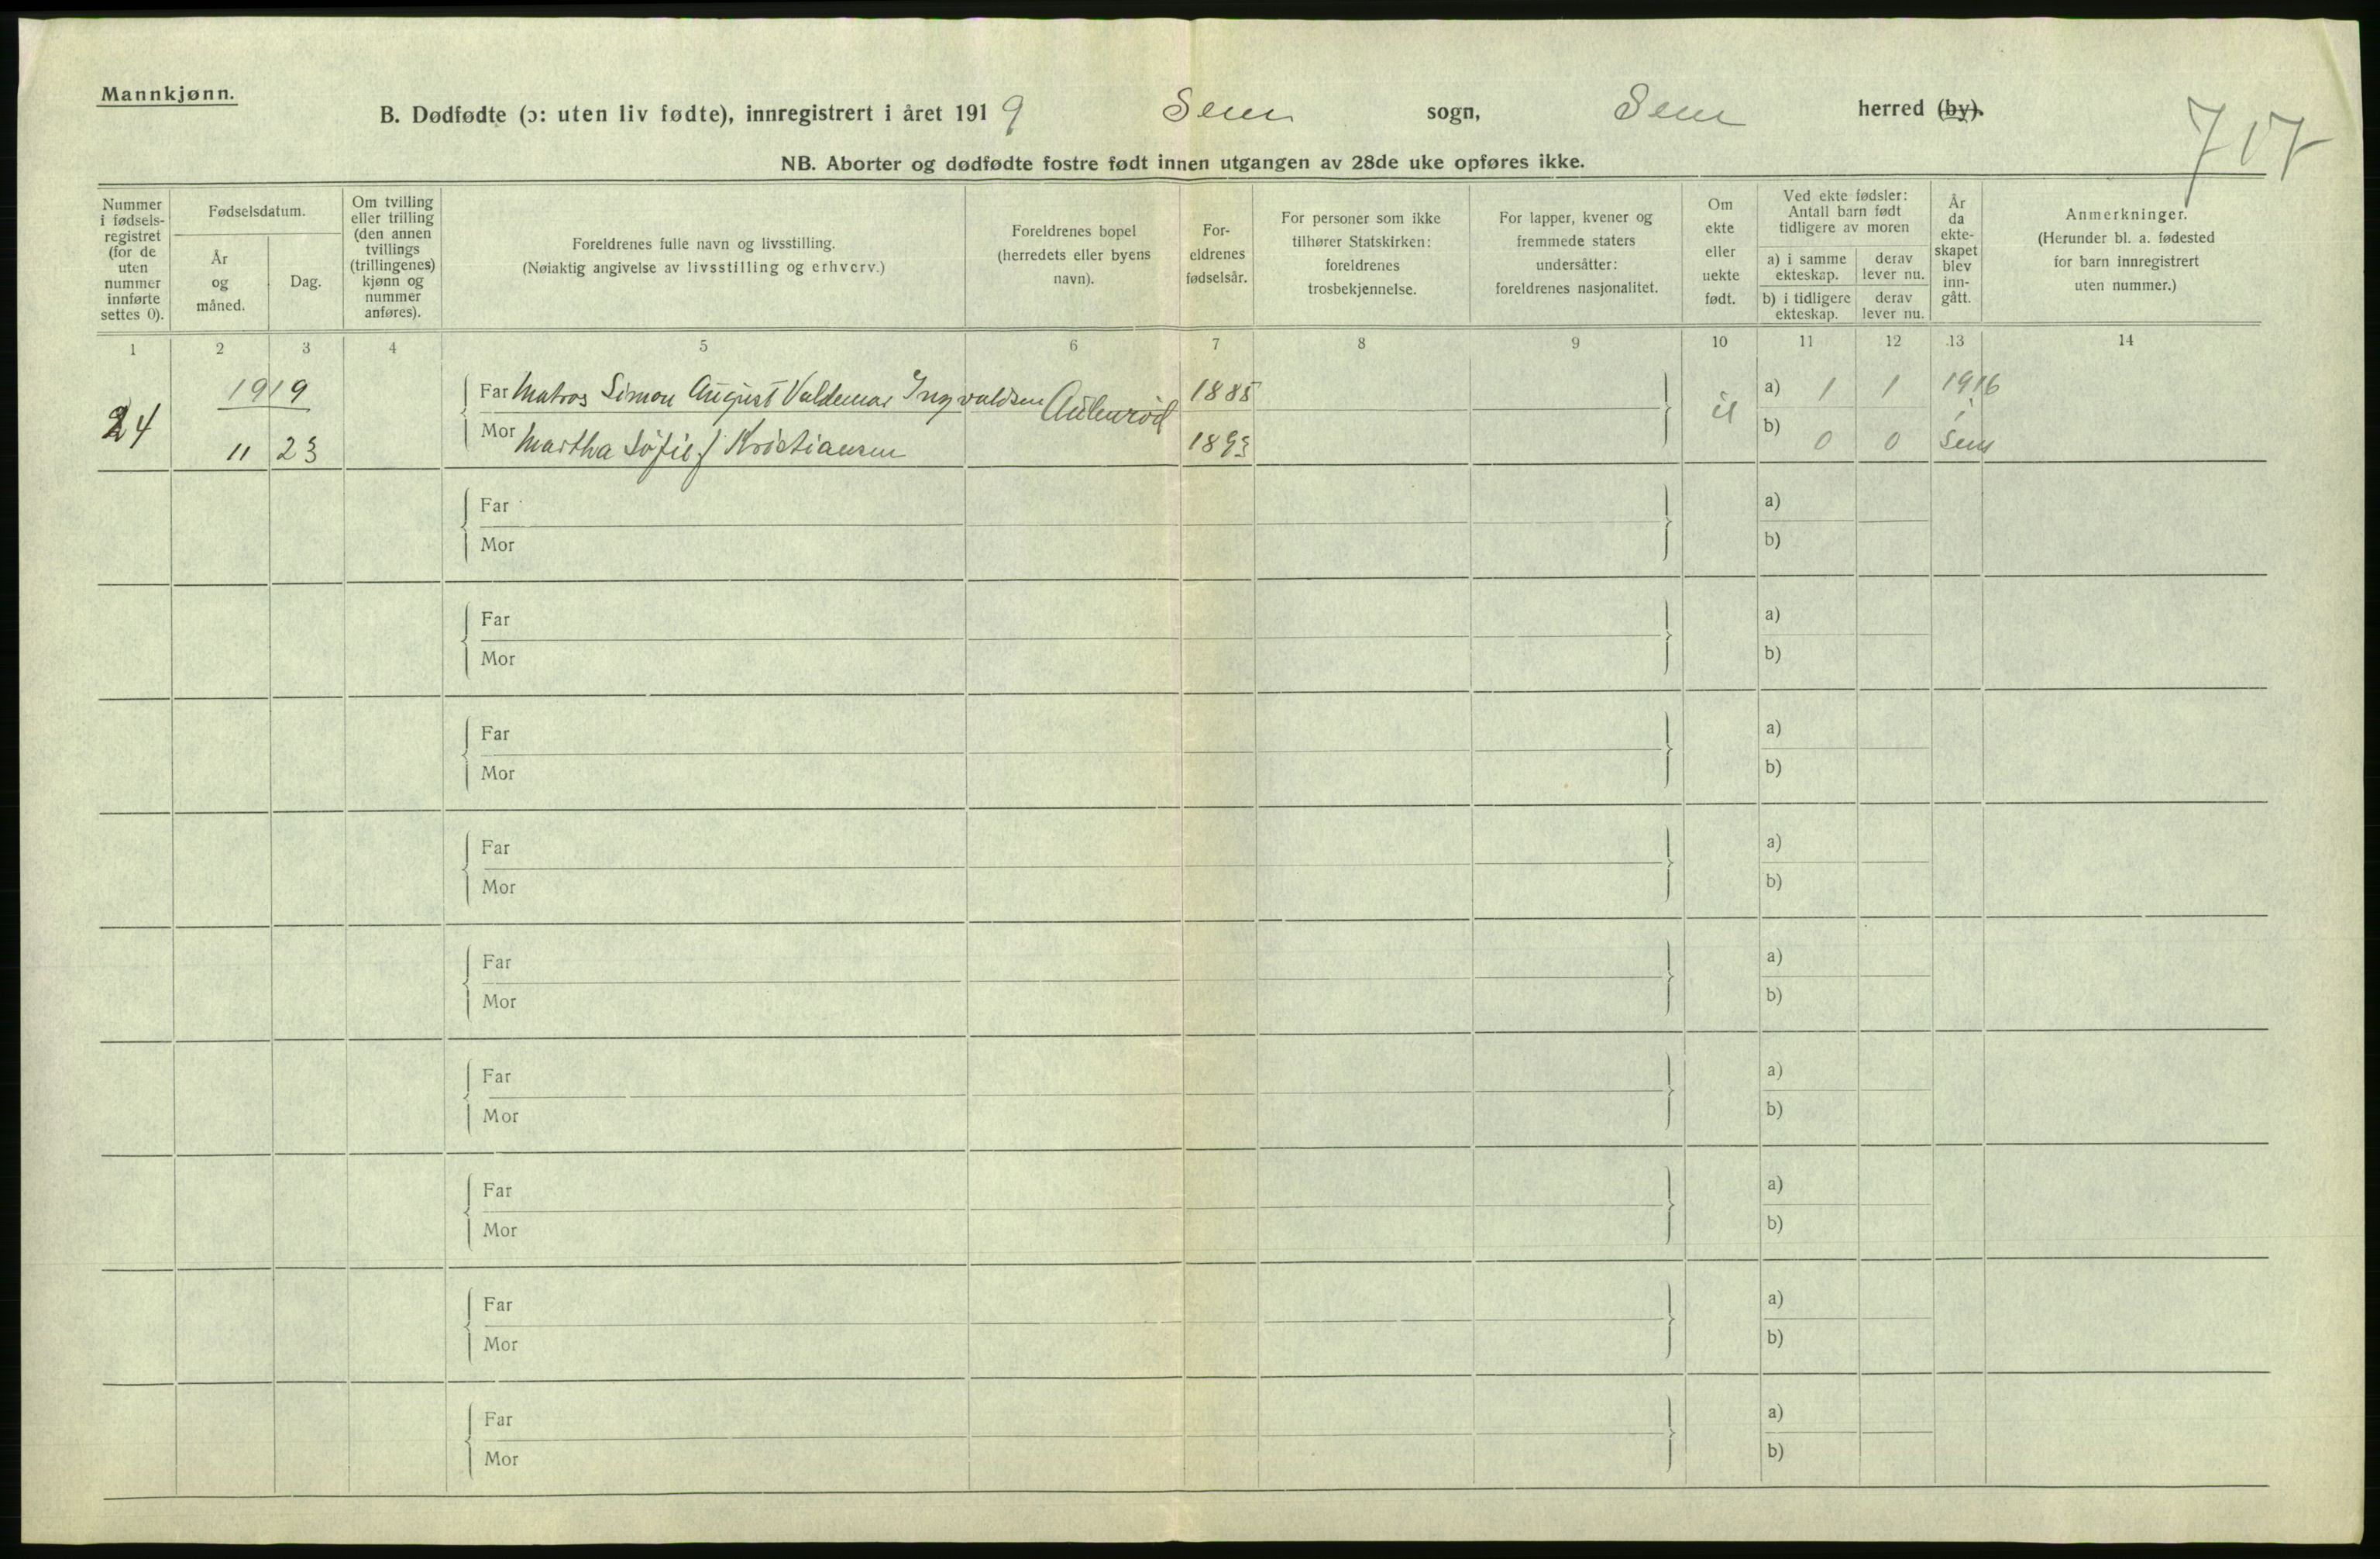 Mannkjønn.
B. Dødfødte (ɔ: uten liv fødte), innregistrert i året 1919 Sem sogn, Sem herred (by).
717
NB. Aborter og dødfødte fostre født innen utgangen av 28de uke opføres ikke.
Nummer
i fødsels-
registret
(for de
uten
nummer
innførte
settes 0).
Fødselsdatum.
År
og
måned.
Dag.
Om tvilling
eller trilling
(den annen
tvillings
(trillingenes)
kjønn og
nummer
anføres).
Foreldrenes fulle navn og livsstilling.
(Nøiaktig angivelse av livsstilling og erhverv.)
Foreldrenes bopel
(herredets eller byens
navn).
For-
eldrenes
fødselsår.
For personer som ikke
tilhører Statskirken:
foreldrenes
trosbekjennelse.
For lapper, kvener og
fremmede staters
undersåtter:
foreldrenes nasjonalitet.
Om
ekte
eller
uekte
født.
Ved ekte fødsler:
Antall barn født
tidligere av moren
a) i samme
ekteskap.
derav
lever nu.
b) i tidligere
ekteskap.
derav
lever nu.
År
da
ekte-
skapet
blev
inn-
gått.
Anmerkninger.
(Herunder bl. a. fødested
for barn innregistrert
uten nummer.)
1 2 3 4 5 6 7 8 9 10 11 12 13 14
24
1919
11 23
Far Matros Simon August Valdemar Ingvaldsen
Mor Martha Sofie f. Kristiansen
1885
1893
a) 1 1
b) 0 0
1916
i
Sem
Far
Mor
a)
b)
Far
Mor
a)
b)
Far
Mor
a)
b)
Far
Mor
a)
b)
Far
Mor
a)
b)
Far
Mor
a)
b)
Far
Mor
a)
b)
Far
Mor
a)
b)
Far
Mor
a)
b)